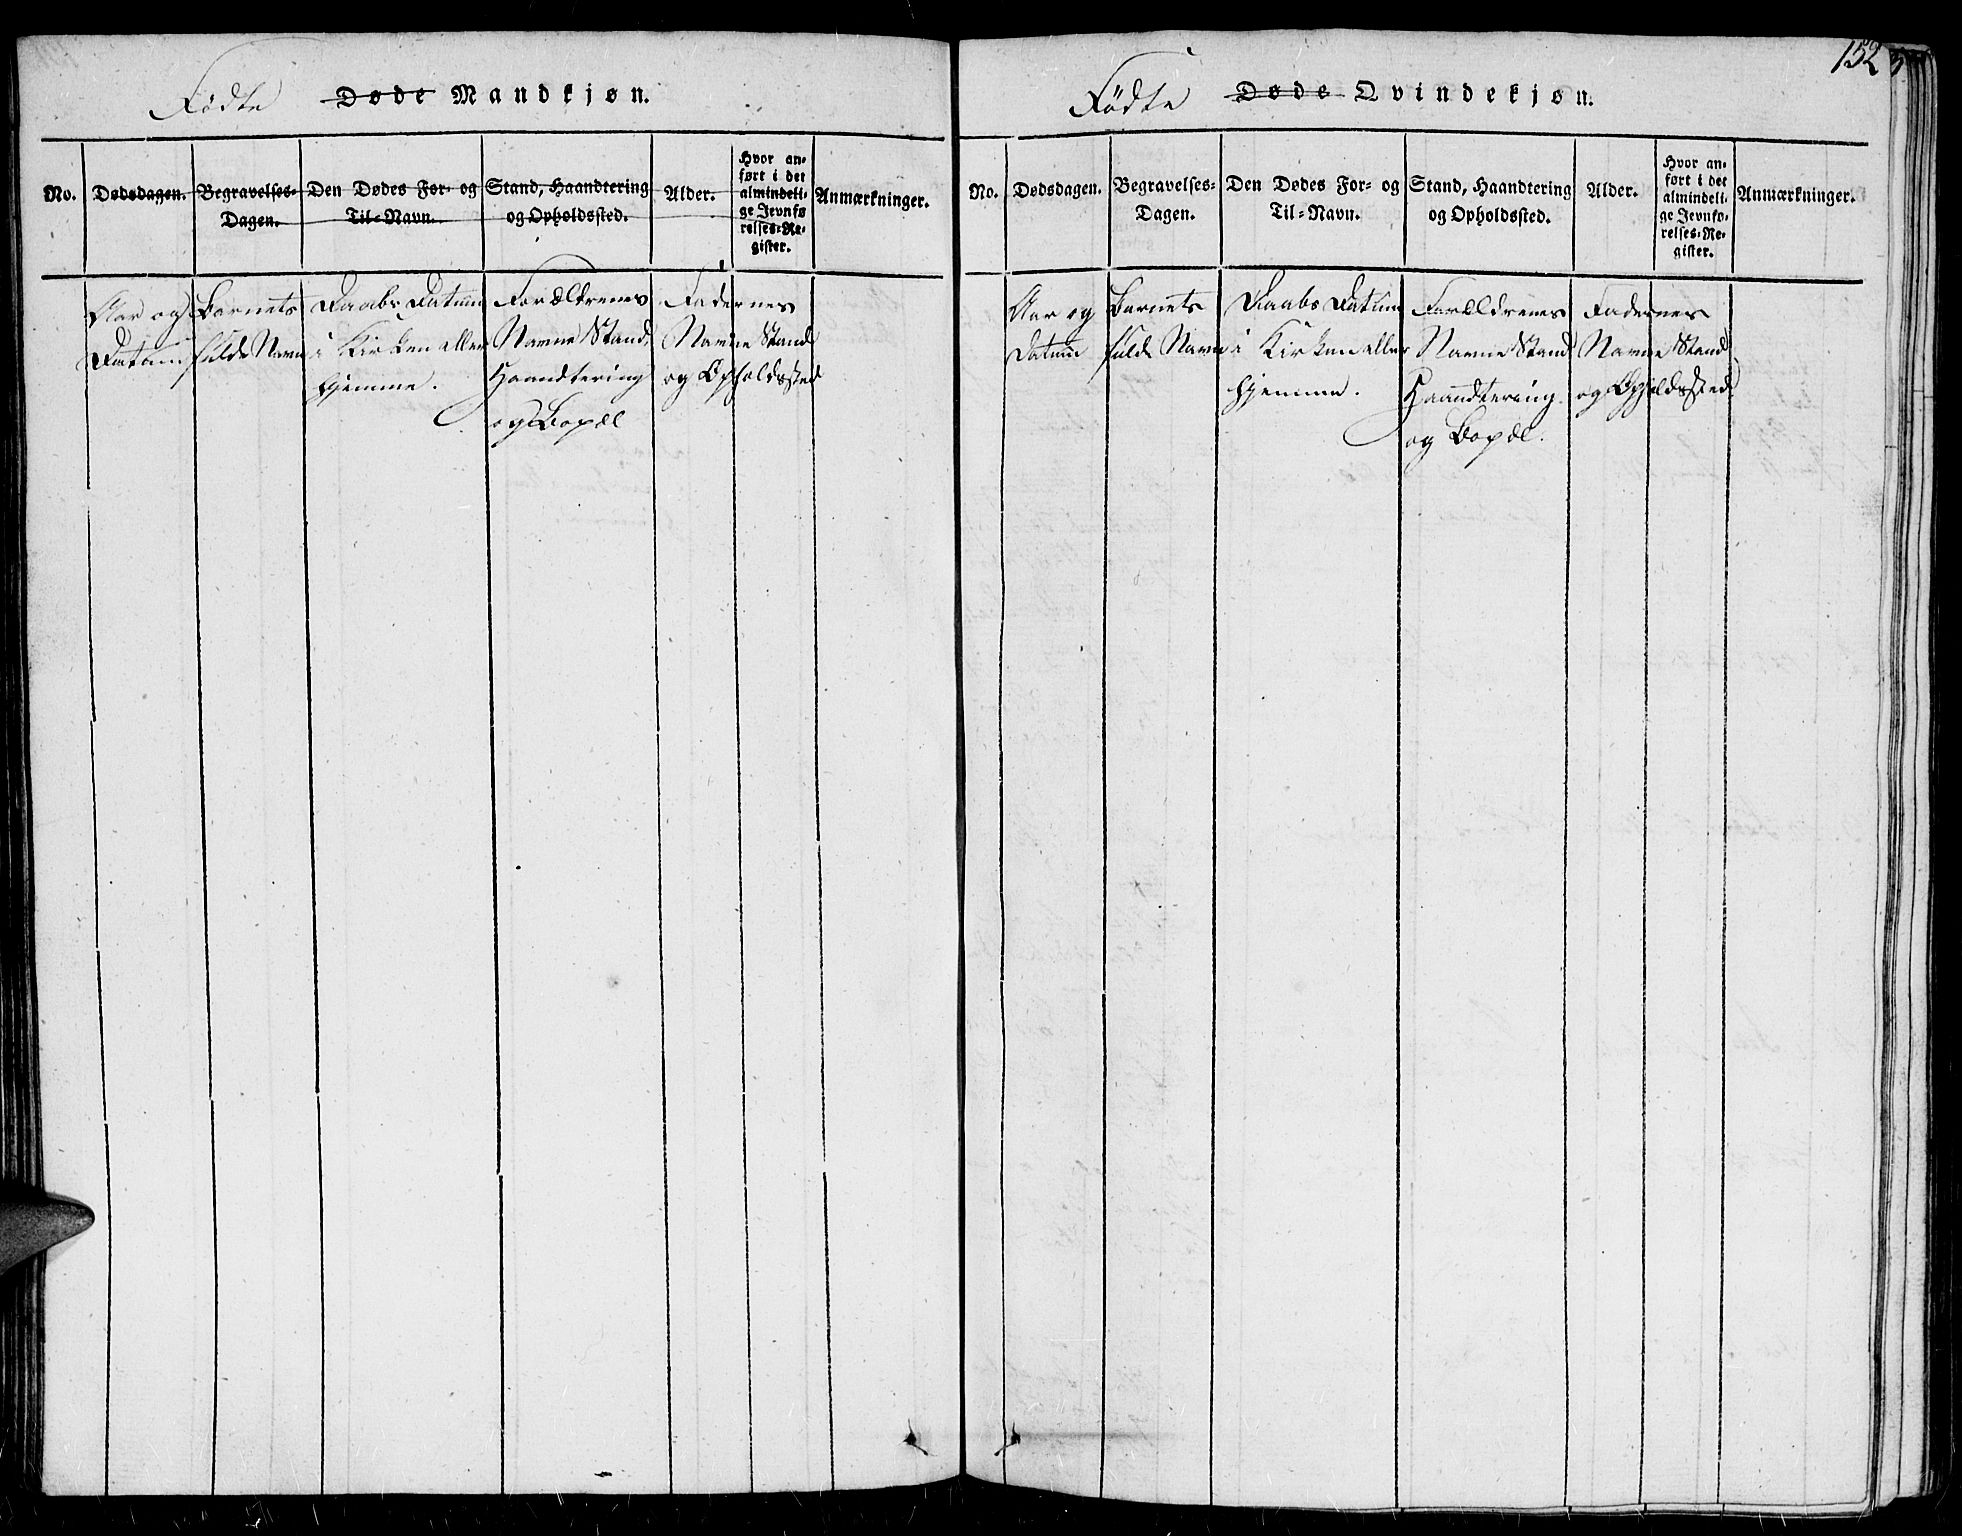 Fødte Døde Mandkjøn.
No.
Dødsdagen.
Begravelses-
Dagen.
Den Dødes For- og
Til-Navn.
Stand, Haandtering
og Opholdssted.
Alder.
Hvor an-
ført i det
almindeli-
ge Jevnfø
relses-Re-
gister.
Anmærkninger.
Aar og
Datum
Barnets
fulde Navn
Daabs Datum
i Kirken eller
hjemme.
Forældrenes
Navne Stand,
Haandtering
og Bopæl
Fadernes
Navne Stand
og Opholdssted
152
Fødte Døde Qvindekjøn.
No.
Dødsdagen.
Begravelses-
Dagen.
Den Dødes For- og
Til-Navn.
Stand, Haandtering
og Opholdssted.
Alder.
Hvor an-
ført i det
almindeli-
ge Jevnfø-
relses-Re-
gister.
Anmærkninger.
Aar og
Datum
Barnets
fulde Navn
Daabs Datum
i Kirken eller
hjemme.
Forældrenes
Navne Stand
Haandtering
og Bopæl.
Fadernes
Navne Stand
og Opholdssted